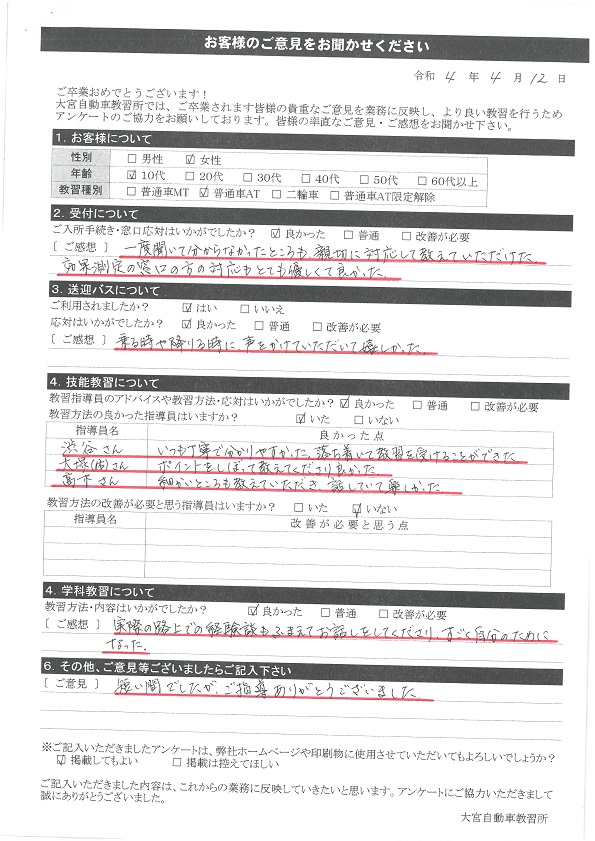 お客様のご意見をお聞かせください
令和 4 年 4 月 12 日
ご卒業おめでとうございます！
大宮自動車教習所では、ご卒業されます皆様の貴重なご意見を業務に反映し、より良い教習を行うため
アンケートのご協力をお願いしております。皆様の率直なご意見・ご感想をお聞かせ下さい。
1. お客様について
性別 □ 男性 ☑ 女性
年齢 ☑ 10代 □ 20代 □ 30代 □ 40代 □ 50代 □ 60代以上
教習種別 □ 普通車MT ☑ 普通車AT □ 二輪車 □ 普通車AT限定解除
2. 受付について
ご入所手続き・窓口応対はいかがでしたか？ ☑ 良かった □ 普通 □ 改善が必要
[ ご感想 ] 一度聞いて分からなかったところも、親切に対応して教えていただけた。
効果測定の窓口の方の対応もとても優しくて良かった。
3. 送迎バスについて
ご利用されましたか？ ☑ はい □ いいえ
応対はいかがでしたか？ ☑ 良かった □ 普通 □ 改善が必要
[ ご感想 ] 乗る時や降りる時に声をかけていただいて嬉しかった。
4. 技能教習について
教習指導員のアドバイスや教習方法・応対はいかがでしたか？ ☑ 良かった □ 普通 □ 改善が必要
教習方法の良かった指導員はいますか？ ☑ いた □ いない
指導員名 良かった点
渋谷さん いつも丁寧で分かりやすかった。落ち着いて教習を受けることができた
大塚( )さん ポイントをしぼって教えてくださり良かった
高市さん 細かいところも教えていただき、話していて楽しかった。
教習方法の改善が必要と思う指導員はいますか？ □ いた ☑ いない
指導員名 改善が必要と思う点
4. 学科教習について
教習方法・内容はいかがでしたか？ ☑ 良かった □ 普通 □ 改善が必要
[ ご感想 ] 実際の路上での経験談もふまえてお話しをしてくださり、すごく自分のために
なった。
6. その他、ご意見等ございましたらご記入下さい
[ ご意見 ] 短い間でしたが、ご指導ありがとうございました
※ご記入いただきましたアンケートは、弊社ホームページや印刷物に使用させていただいてもよろしいでしょうか？
☑ 掲載してもよい □ 掲載は控えてほしい
ご記入いただきました内容は、これからの業務に反映していきたいと思います。アンケートにご協力いただきまして
誠にありがとうございました。
大宮自動車教習所